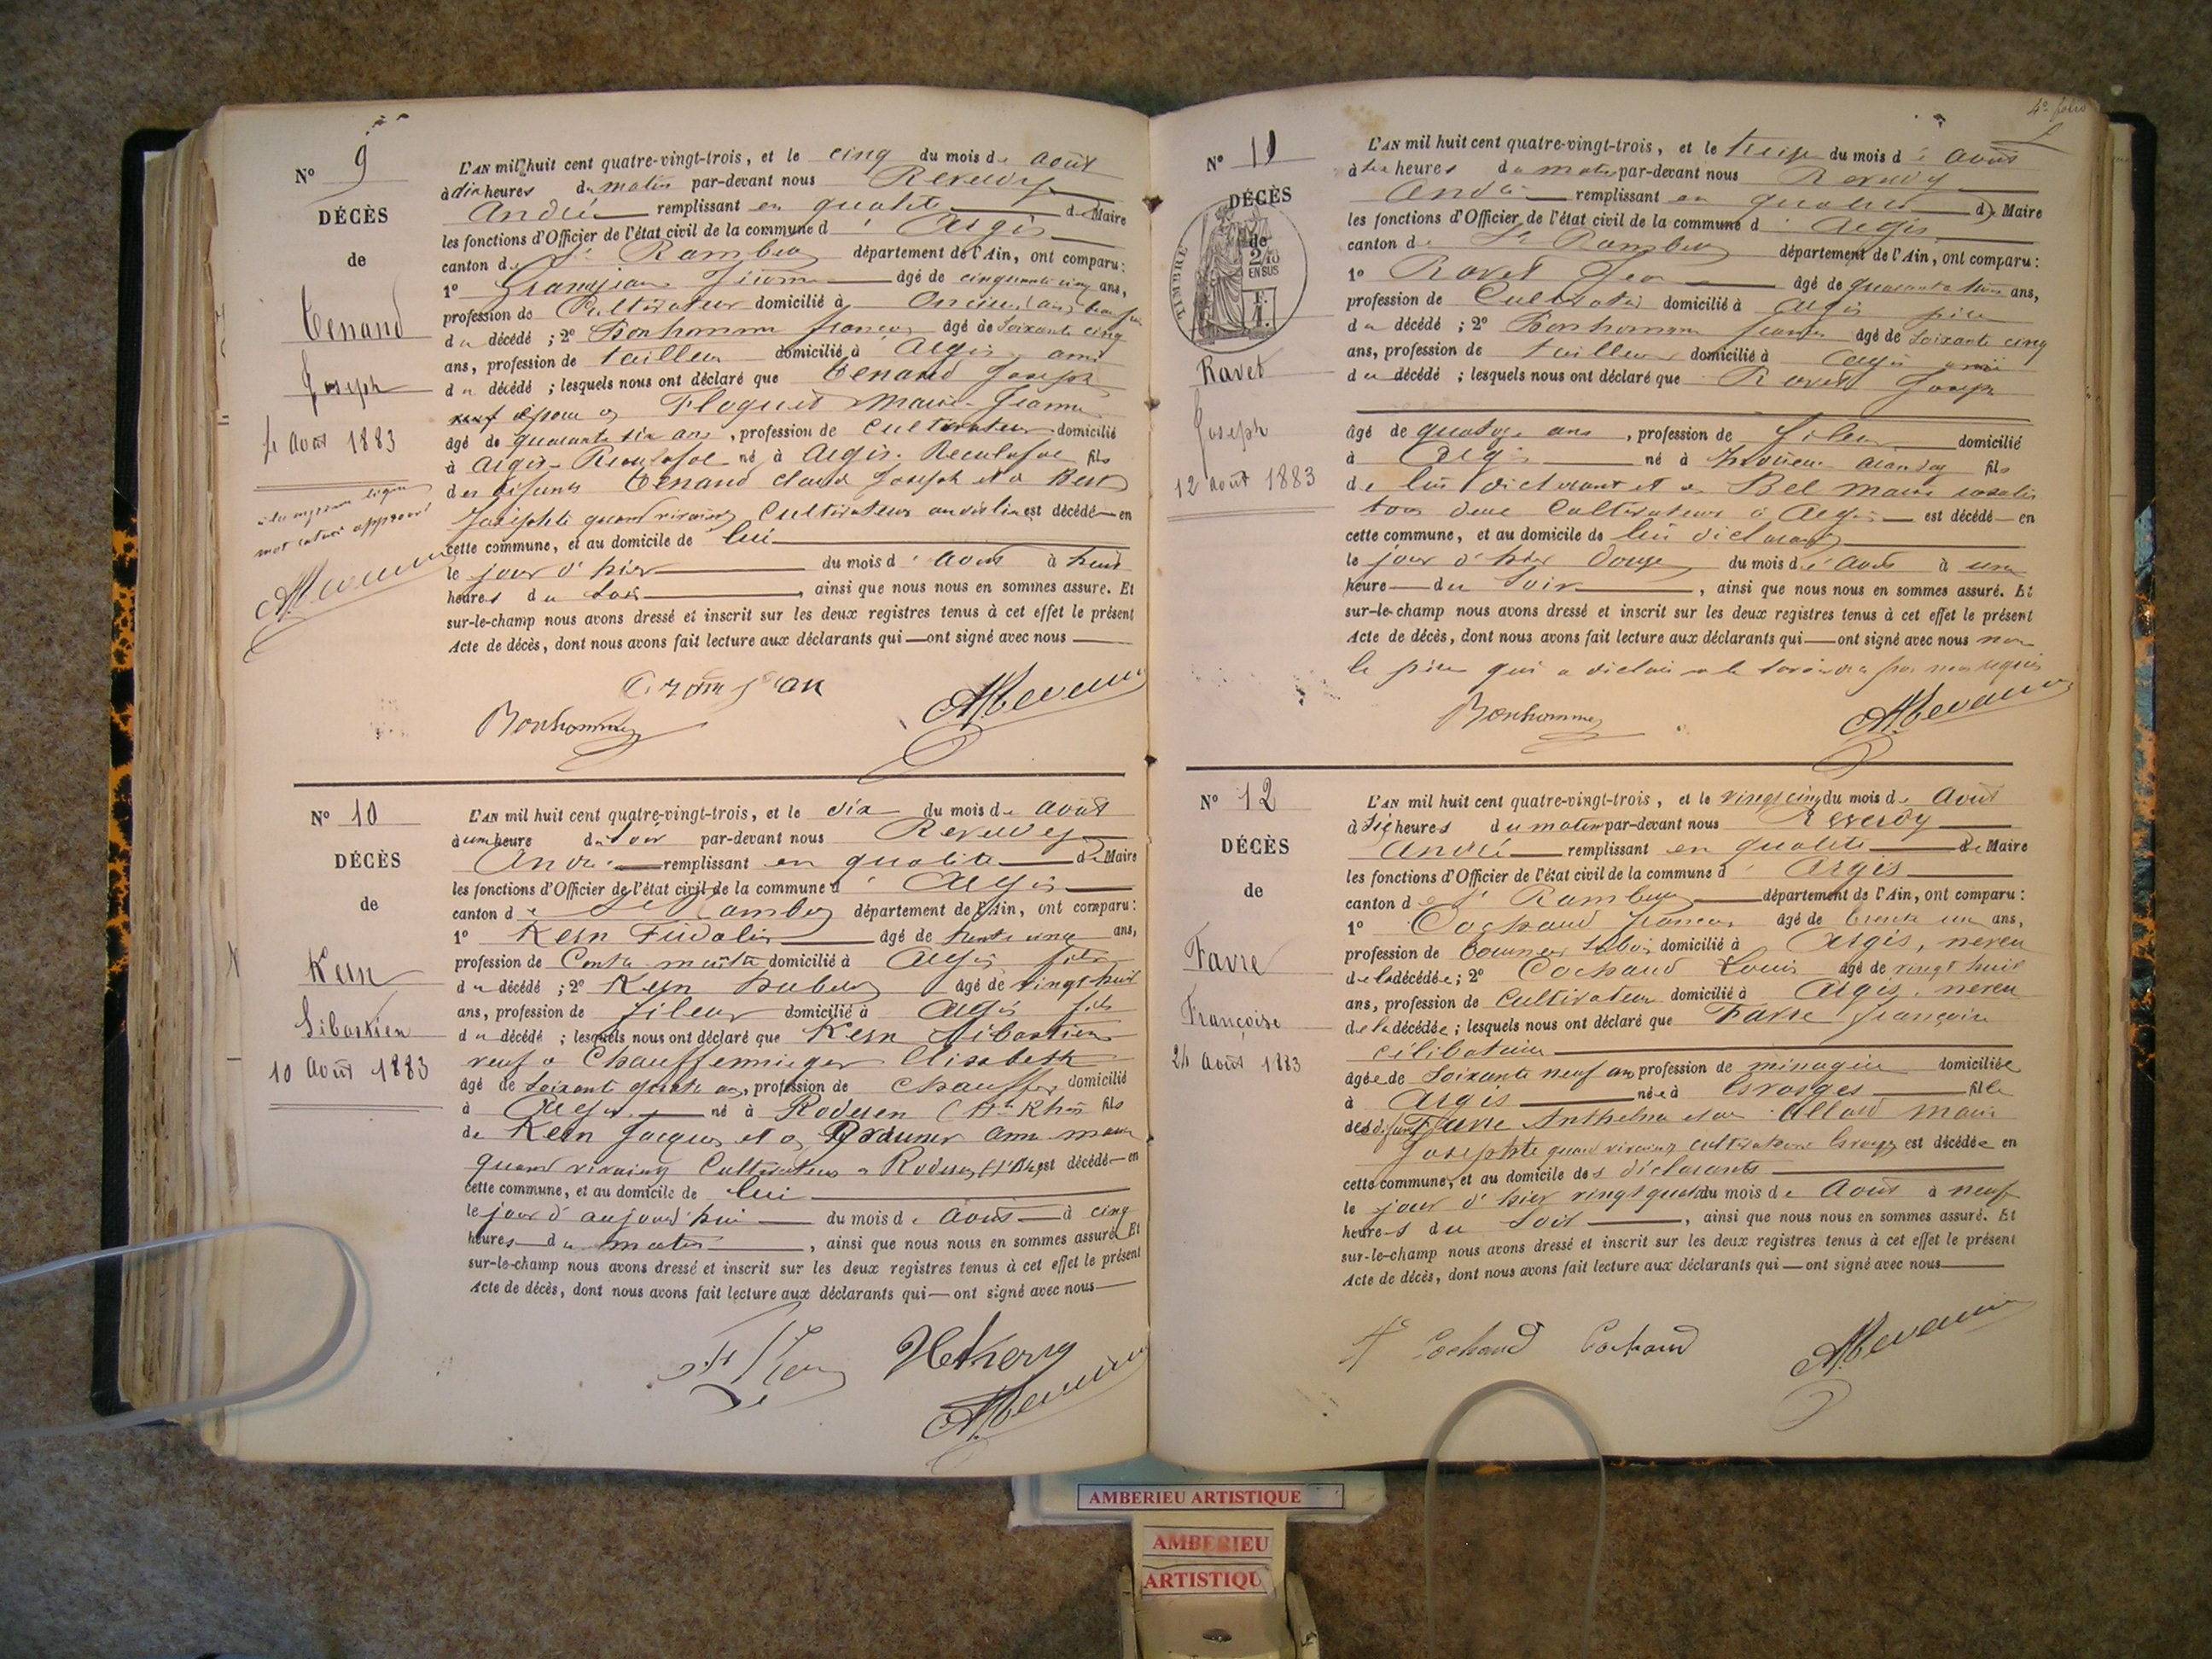 N° 9
DÉCÈS
de
Tenand
Joseph
4 Août 1883
mot rature approuvé
L'AN mil huit cent quatre-vingt-trois, et le cinq du mois d août
à dix heures du matin par-devant nous Reverdy
André remplissant en qualité de Maire
les fonctions d'Officier de l'état civil de la commune d' Argis
canton de St Rambert département de l'Ain, ont comparu:
1° Grandjean âgé de cinquante cinq ans,
profession de Cultivateur domicilié à
du décédé; 2° Bonhomme françois âgé de Soixante cinq
ans, profession de tailleur domicilié à Argis, ami
du décédé; lesquels nous ont déclaré que Tenand Joseph
époux de Floquet Marie-Jeanne
âgé de quarante six ans, profession de Cultivateur domicilié
à Argis-Reculafol né à Argis-Reculafol fils
des défunts Tenand Claude Joseph et de
Josephte quand vivaient Cultivateurs est décédé en
cette commune, et au domicile de lui
le jour d'hier du mois d'août à
heures du soir, ainsi que nous nous en sommes assuré. Et
sur-le-champ nous avons dressé et inscrit sur les deux registres tenus à cet effet le présent
Acte de décès, dont nous avons fait lecture aux déclarants qui — ont signé avec nous
Bonhomme
N° 10
DÉCÈS
de
Kern
Sébastien
10 Août 1883
L'AN mil huit cent quatre-vingt-trois, et le dix du mois d Août
à une heure du soir par-devant nous Reverdy
André remplissant en qualité de Maire
les fonctions d'Officier de l'état civil de la commune d' Argis
canton de St Rambert département de l'Ain, ont comparu:
1° Kern Fidolin âgé de trente cinq ans,
profession de Contre maître domicilié à Argis, fils
du décédé; 2° Kern hubert âgé de vingt huit
ans, profession de fileur domicilié à Argis fils
du décédé; lesquels nous ont déclaré que Kern Sébastien
veuf de Elisabeth
âgé de Soixante quatre ans, profession de chauffeur domicilié
à Argis né à Roderen (Ht Rhin) fils
de Kern Jacques et de Brauner anne marie
quand vivaient Cultivateurs à Roderen est décédé en
cette commune, et au domicile de lui
le jour d'aujourd'hui du mois d Août à cinq
heures du matin, ainsi que nous nous en sommes assuré. Et
sur-le-champ nous avons dressé et inscrit sur les deux registres tenus à cet effet le présent
Acte de décès, dont nous avons fait lecture aux déclarants qui — ont signé avec nous
4e folio
N° 11
DÉCÈS
de
TIMBRE
2/10
EN SUS
Ravet
Joseph
12 août 1883
L'AN mil huit cent quatre-vingt-trois, et le treize du mois d' août
à heures du matin par-devant nous Reverdy
André remplissant en qualité de Maire
les fonctions d'Officier de l'état civil de la commune d' Argis
canton de St Rambert département de l'Ain, ont comparu:
1° Ravet âgé de quarante ans,
profession de Cultivateur domicilié à Argis père
du décédé; 2° Bonhomme âgé de Soixante cinq
ans, profession de tailleur domicilié à Argis ami
du décédé; lesquels nous ont déclaré que Ravet Joseph
âgé de quatorze ans, profession de fileur domicilié
à Argis né à fils
de lui déclarant et de Bel Marie
tous deux Cultivateurs à Argis est décédé en
cette commune, et au domicile de lui déclarant
le jour d'hier douze du mois d'août à une
heure du soir, ainsi que nous nous en sommes assuré. Et
sur-le-champ nous avons dressé et inscrit sur les deux registres tenus à cet effet le présent
Acte de décès, dont nous avons fait lecture aux déclarants qui — ont signé avec nous non
le père qui a déclaré ne le savoir
Bonhomme
N° 12
DÉCÈS
de
Favre
Françoise
24 Août 1883
L'AN mil huit cent quatre-vingt-trois, et le vingt cinq du mois d Août
à six heures du matin par-devant nous Reverdy
André remplissant en qualité de Maire
les fonctions d'Officier de l'état civil de la commune d' Argis
canton de St Rambert département de l'Ain, ont comparu:
1° Cochaud françois âgé de trente un ans,
profession de tourneur domicilié à Argis, neveu
de la décédée; 2° Cochaud Louis âgé de vingt huit
ans, profession de Cultivateur domicilié à Argis, neveu
de la décédée; lesquels nous ont déclaré que Favre françoise
célibataire
âgée de Soixante neuf ans profession de ménagère domiciliée
à Argis née à Evosges fille
des défunts Favre Anthelme et de Allard Marie
Josephte quand vivaient cultivateurs Evosges est décédée en
cette commune, et au domicile des déclarants
le jour d'hier vingt quatre du mois d Août à neuf
heures du Soir, ainsi que nous nous en sommes assuré. Et
sur-le-champ nous avons dressé et inscrit sur les deux registres tenus à cet effet le présent
Acte de décès, dont nous avons fait lecture aux déclarants qui — ont signé avec nous
Cochaud Cochaud
AMBERIEU ARTISTIQUE
AMBERIEU
ARTISTIQU